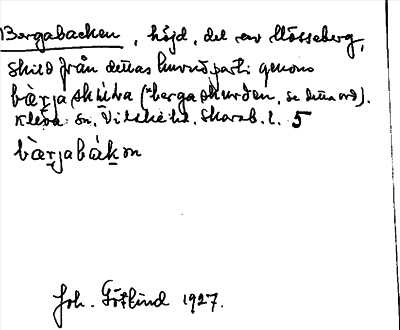 Bergabacken, höjd, del av Mösseberg,
skild från dettas huvudparti genom
bæ̀rjaskúra (="bergaskurden, se detta ord).
Kleva sn, Vilske hd, Skarab. l. 5
bæ̀rjabákən
Joh. Götlind 1927.